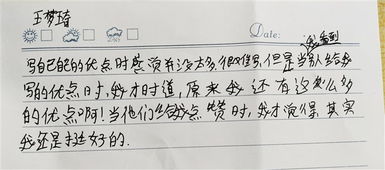 王梦琦
Date:
写自己的优点时感觉并没太多,很难写,但是当我看到别人给我
写的优点时,我才知道,原来我还有这么多
的优点啊!当他们给我点赞时,我才觉得,其实
我还是挺好的.